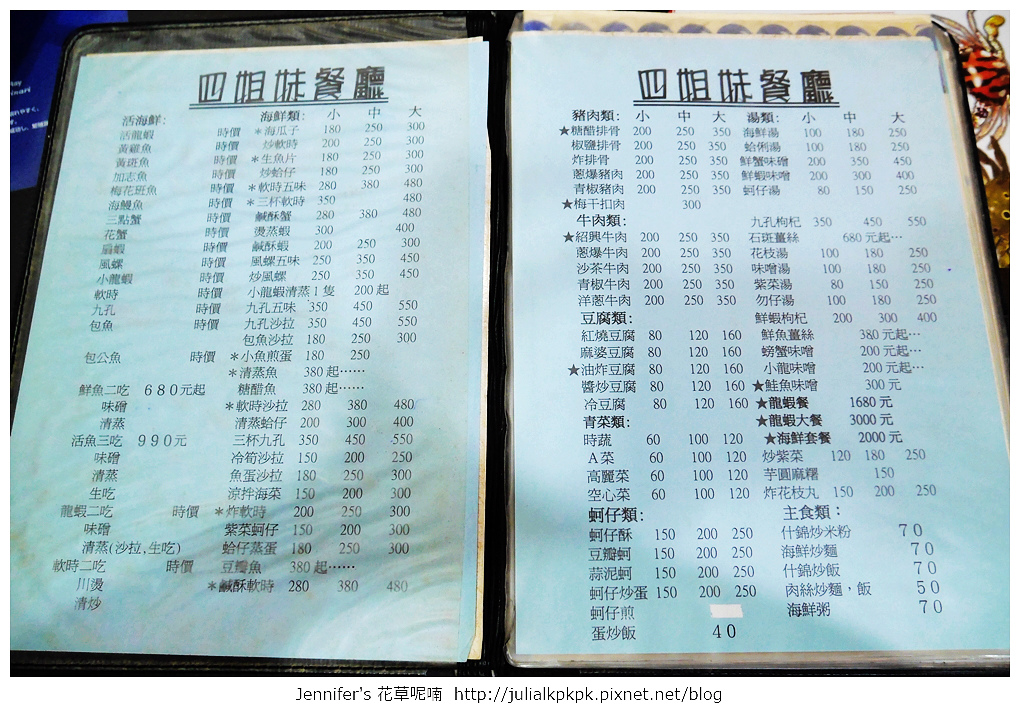 四姐妹餐廳
活海鮮:
活龍蝦 時價
黃雞魚 時價
黃斑魚 時價
加志魚 時價
梅花班魚 時價
海鰻魚 時價
三點蟹 時價
花蟹 時價
扇蝦 時價
風螺 時價
小龍蝦 時價
軟時 時價
九孔 時價
包魚 時價
包公魚 時價
鮮魚二吃 680元起
味磳
清蒸
活魚三吃 990元
味磳
清蒸
生吃
龍蝦二吃 時價
味磳
清蒸(沙拉,生吃)
軟時二吃 時價
川燙
清炒
海鮮類: 小 中 大
*海瓜子 180 250 300
炒軟時 200 250 300
*生魚片 180 250 300
炒蛤仔 180 250 300
*軟時五味 280 380 480
*三杯軟時 350 480
鹹酥蟹 280 380 480
燙蒸蝦 300 400
鹹酥蝦 200 250 300
風螺五味 250 350 450
炒風螺 250 350 450
小龍蝦清蒸1隻 200起
九孔五味 350 450 550
九孔沙拉 350 450 550
包魚沙拉 180 250 300
*小魚煎蛋 180 250
*清蒸魚 380起……
糖醋魚 380起……
*軟時沙拉 280 380 480
清蒸蛤仔 200 300 400
三杯九孔 350 450 550
冷筍沙拉 150 200 250
魚蛋沙拉 180 250 300
涼拌海菜 150 200 300
*炸軟時 200 250 300
紫菜蚵仔 150 200 300
蛤仔蒸蛋 180 250 300
豆瓣魚 380起……
*鹹酥軟時 280 380 480
四姐妹餐廳
豬肉類: 小 中 大
★糖醋排骨 200 250 350
椒鹽排骨 200 250 350
炸排骨 200 250 350
蔥爆豬肉 200 250 350
青椒豬肉 200 250 350
★梅干扣肉 300
牛肉類:
★紹興牛肉 200 250 350
蔥爆牛肉 200 250 350
沙茶牛肉 200 250 350
青椒牛肉 200 250 350
洋蔥牛肉 200 250 350
豆腐類:
紅燒豆腐 80 120 160
麻婆豆腐 80 120 160
★油炸豆腐 80 120 160
醬炒豆腐 80 120 160
冷豆腐 80 120 160
青菜類:
時蔬 60 100 120
A菜 60 100 120
高麗菜 60 100 120
空心菜 60 100 120
蚵仔類:
蚵仔酥 150 200 250
豆瓣蚵 150 200 250
蒜泥蚵 150 200 250
蚵仔炒蛋 150 200 250
蚵仔煎
蛋炒飯 40
湯類: 小 中 大
海鮮湯 100 180 250
蛤俐湯 100 180 250
鮮蟹味磳 200 350 450
鮮蝦味噌 200 300 400
蚵仔湯 80 150 250
九孔枸杞 350 450 550
石斑薑絲 680元起…
花枝湯 100 180 250
味噌湯 100 180 250
紫菜湯 80 150 250
勿仔湯 100 180 250
鮮蝦枸杞 200 300 400
鮮魚薑絲 380元起…
螃蟹味噌 200元起…
小龍味噌 200元起…
★鮭魚味噌 300元
★龍蝦餐 1680元
★龍蝦大餐 3000元
★海鮮套餐 2000元
炒紫菜 120 180 250
芋圓麻糬 150
炸花枝丸 150 200 250
主食類:
什錦炒米粉 70
海鮮炒麵 70
什錦炒飯 70
肉絲炒麵,飯 50
海鮮粥 70
Jennifer's 花草呢喃 http://julialkpkpk.pixnet.net/blog